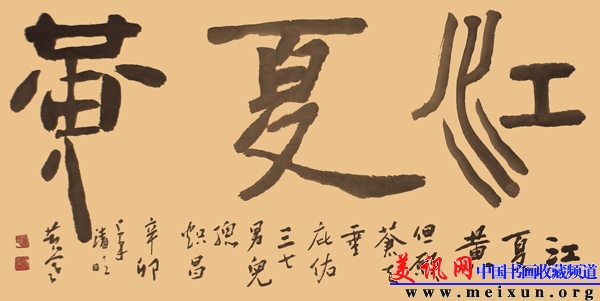 江夏黄
江
夏
黄
但願
蒼天
垂
庇佑
三七
男兒
總
炽昌
辛卯
年
清明
美讯网
中国书画收藏频道
www.meixun.org